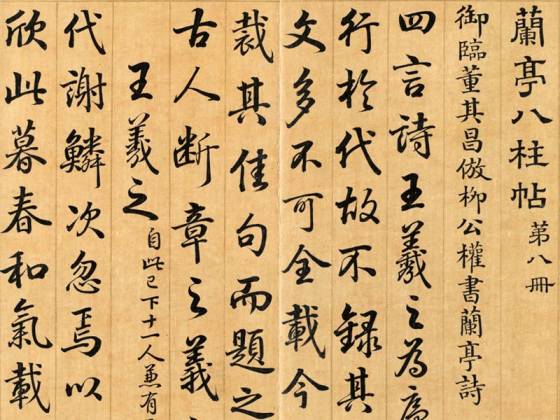 蘭亭八柱帖第八冊
御臨董其昌倣柳公權書蘭亭詩
四言詩王羲之為序
行於代故不錄其
文多不可全載今
裁其佳句而題之
古人斷章之義
王羲之自此已下十一人兼有
代謝鱗次忽焉以
欣此暮春和氣載